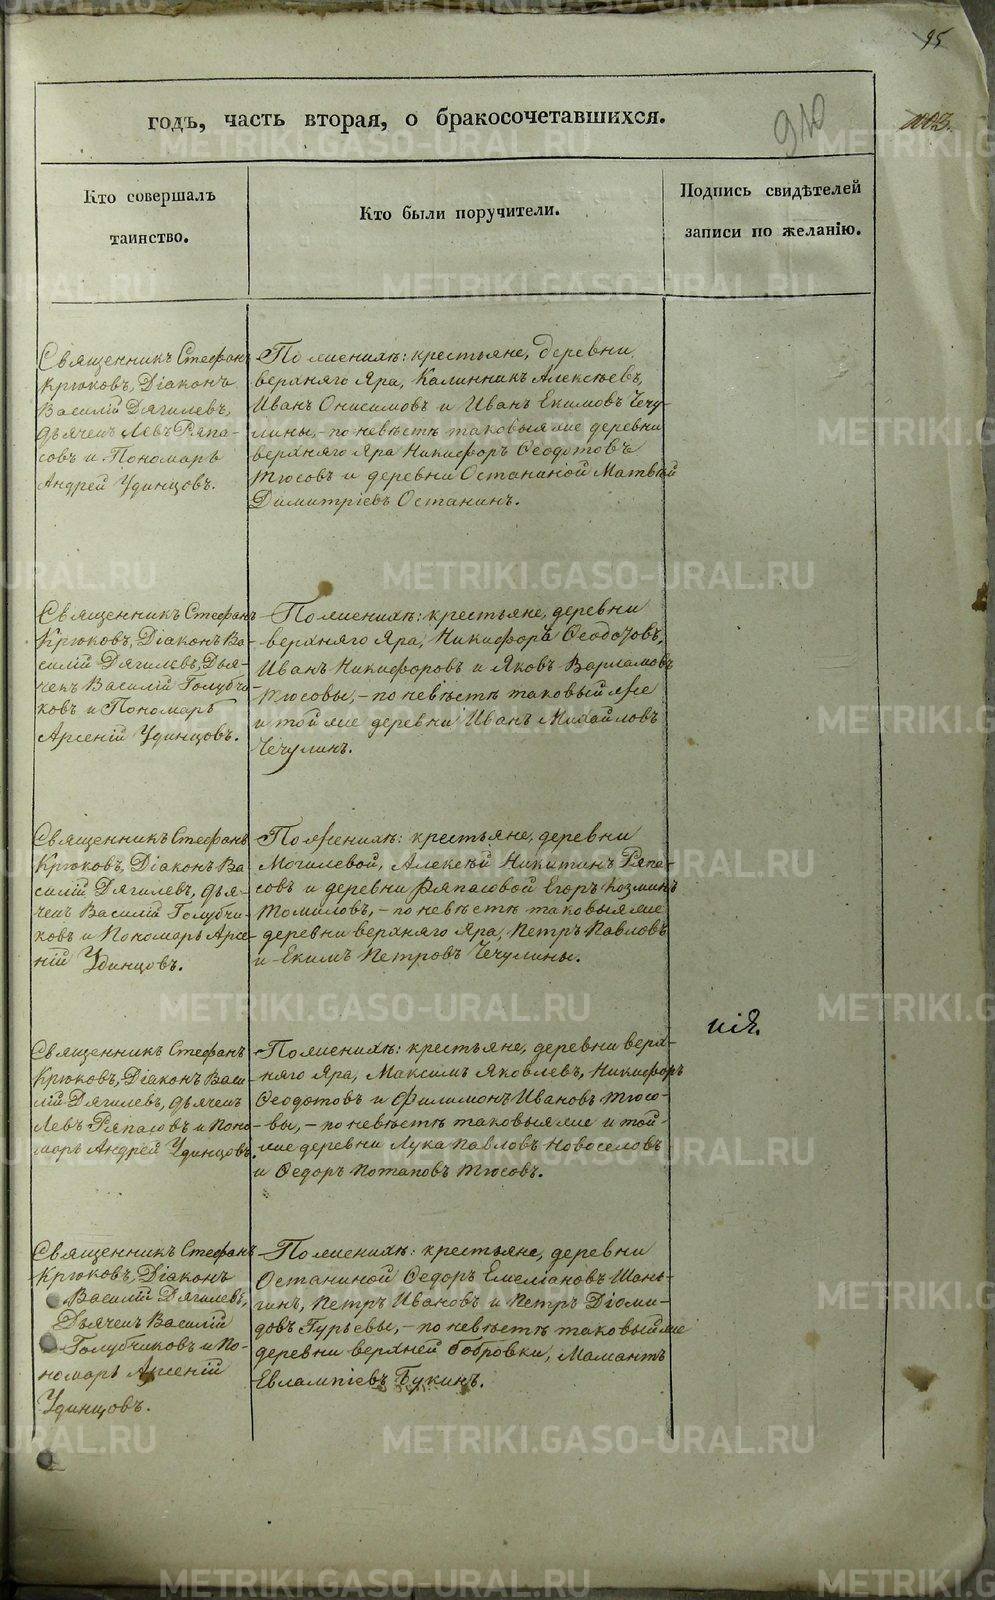 95
годъ, часть вторая, о бракосочетавшихся.
910
1003.
Кто совершалъ
таинство.
Кто были поручители.
Подпись свидѣтелей
записи по желанію.
Священникъ Стефанъ
Крюковъ, Діаконъ
Василій Дягилевъ,
Дьячекъ Левъ Ряпа-
совъ и Пономарь
Андрей Удинцовъ.
По женихѣ: крестьяне, деревни
верхняго Яра, Калинникъ Алексѣевъ,
Иванъ Онисимовъ и Иванъ Екимовъ Чечу-
лины, - по невѣстѣ таковыя же деревни
верхняго Яра Никифоръ Ѳеодотовъ
Тюсовъ и деревни Останиной Матвѣй
Димитріевъ Останинъ.
Священникъ Стефанъ
Крюковъ, Діаконъ Ва-
силій Дягилевъ, Дья-
чекъ Василій Голубчи-
ковъ и Пономарь
Арсеній Удинцовъ.
По женихѣ: крестьяне, деревни
верхняго Яра, Никифоръ Ѳеодотовъ,
Иванъ Никифоровъ и Яковъ Варламовъ
Тюсовы, - по невѣстѣ таковый же
и той же деревни Иванъ Михайловъ
Чечулинъ.
Священникъ Стефанъ
Крюковъ, Діаконъ Ва-
силій Дягилевъ, дья-
чекъ Василій Голубчи-
ковъ и Пономарь Арсе-
ній Удинцовъ.
По женихѣ: крестьяне, деревни
Мочилевой, Алексѣй Никитинъ Ряпа-
совъ и деревни Ряпасовой Егоръ Козминъ
Томиловъ, - по невѣстѣ таковыя же
деревни верхняго Яра, Петръ Павловъ
и Екимъ Петровъ Чечулины.
Священникъ Стефанъ
Крюковъ, Діаконъ Васи-
лій Дягилевъ, дьячекъ
Левъ Ряпасовъ и Поно-
марь Андрей Удинцовъ.
По женихѣ: крестьяне, деревни верх-
няго Яра, Максимъ Яковлевъ, Никифоръ
Ѳеодотовъ и Филимонъ Ивановъ Тюсо-
вы, - по невѣстѣ таковыя же и той
же деревни Лука Павловъ Новоселовъ
и Ѳедоръ Потаповъ Тюсовъ.
нія.
Священникъ Стефанъ
Крюковъ, Діаконъ
Василій Дягилевъ,
Дьячекъ Василій
Голубчиковъ и По-
номарь Арсеній
Удинцовъ.
По женихѣ: крестьяне, деревни
Останиной Ѳедоръ Емеліановъ Шань-
гинъ, Петръ Ивановъ и Петръ Діоми-
довъ Гурьевы, - по невѣстѣ таковый же
деревни верхней бобровки, Мамантъ
Евлампіевъ Букинъ.
METRIKI.GASO-URAL.RU